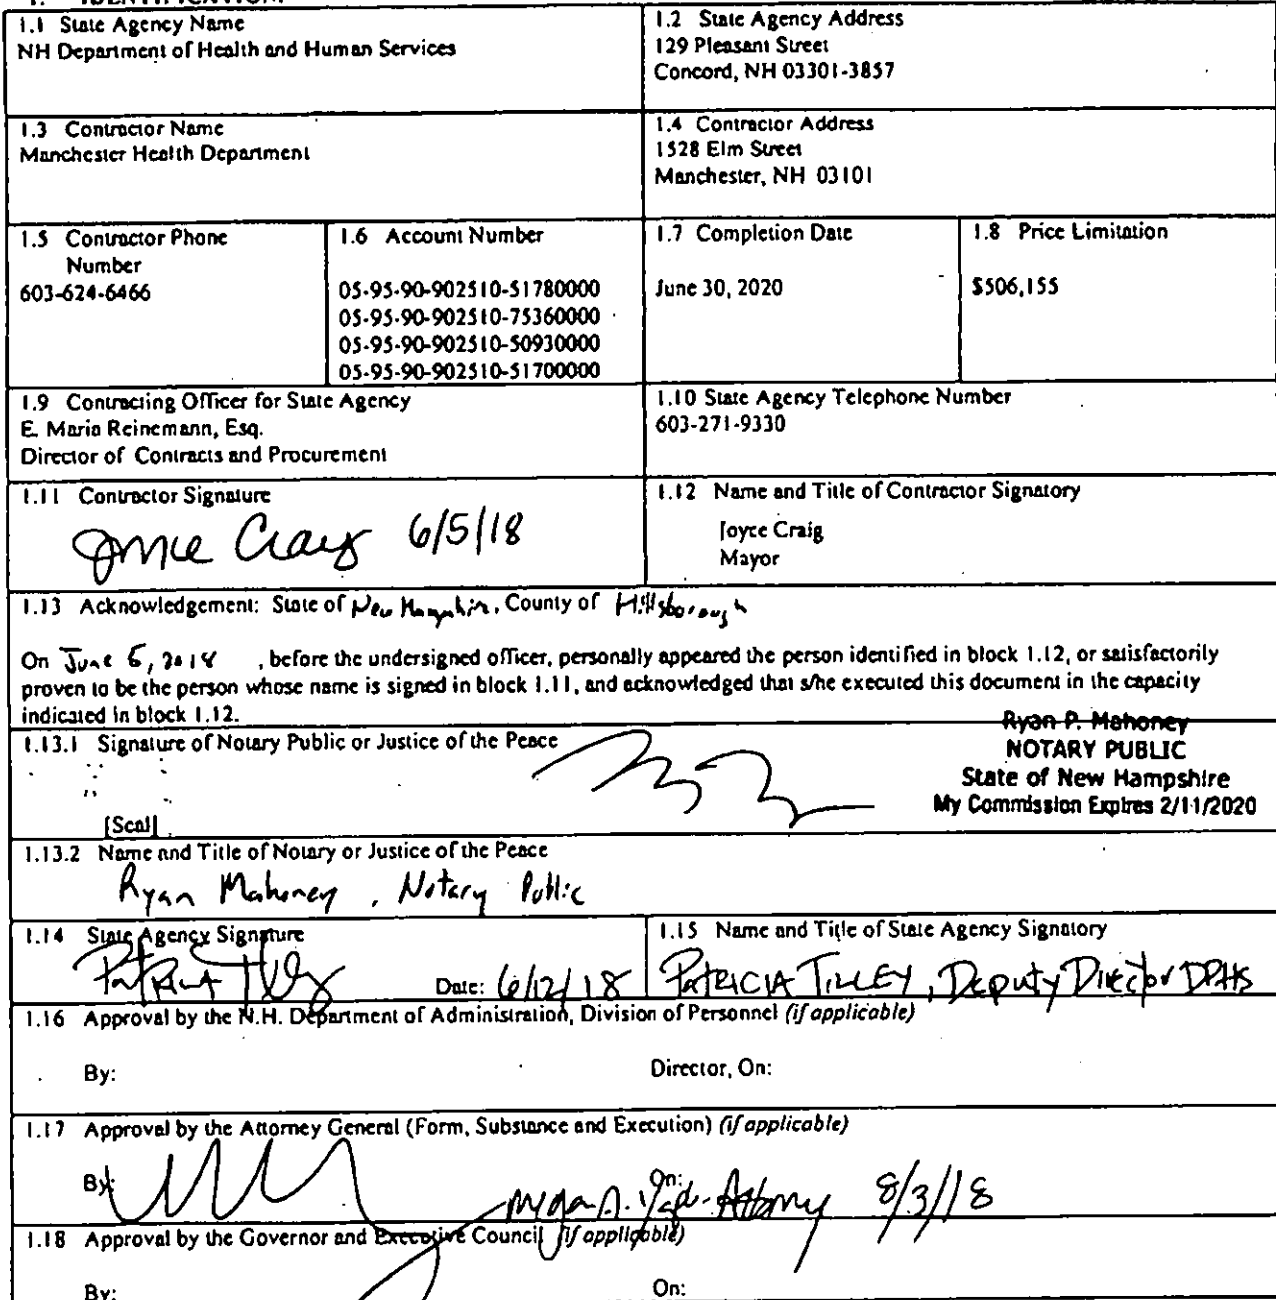 1. IDENTIFICATION.
1.1 State Agency Name
NH Department of Health and Human Services
1.2 State Agency Address
129 Pleasant Street
Concord, NH 03301-3857
1.3 Contractor Name
Manchester Health Department
1.4 Contractor Address
1528 Elm Street
Manchester, NH 03101
1.5 Contractor Phone
Number
603-624-6466
1.6 Account Number
05-95-90-902510-51780000
05-95-90-902510-75360000
05-95-90-902510-50930000
05-95-90-902510-51700000
1.7 Completion Date
June 30, 2020
1.8 Price Limitation
$506,155
1.9 Contracting Officer for State Agency
E. Maria Reinemann, Esq.
Director of Contracts and Procurement
1.10 State Agency Telephone Number
603-271-9330
1.11 Contractor Signature
Joyce Craig 6/5/18
1.12 Name and Title of Contractor Signatory
Joyce Craig
Mayor
1.13 Acknowledgement: State of New Hampshire, County of Hillsborough
On June 5, 2018, before the undersigned officer, personally appeared the person identified in block 1.12, or satisfactorily
proven to be the person whose name is signed in block 1.11, and acknowledged that s/he executed this document in the capacity
indicated in block 1.12.
1.13.1 Signature of Notary Public or Justice of the Peace
Ryan P. Mahoney
NOTARY PUBLIC
State of New Hampshire
My Commission Expires 2/11/2020
[Seal]
1.13.2 Name and Title of Notary or Justice of the Peace
Ryan Mahoney, Notary Public
1.14 State Agency Signature
Date: 6/12/18
1.15 Name and Title of State Agency Signatory
PATRICIA TILLEY, Deputy Director DPHS
1.16 Approval by the N.H. Department of Administration, Division of Personnel (if applicable)
By:
Director, On:
1.17 Approval by the Attorney General (Form, Substance and Execution) (if applicable)
By:
On:
Attorney 8/3/18
1.18 Approval by the Governor and Executive Council (if applicable)
By:
On: